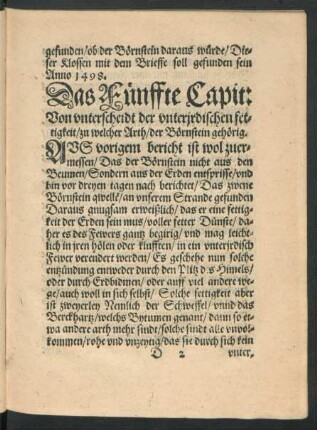 gefunden/ob der Börnstein daraus würde/Die-
ser Klossen mit dem Brieffe soll gefunden sein
Anno 1498.
Das Fünffte Capit:
Von vnterscheidt der vnterjrdischen fet-
tigkeit/zu welcher Arth/der Börnstein gehörig.
AVS vorigem bericht ist wol zuer-
messen/Das der Börnstein nicht aus den
Beumen/Sondern aus der Erden entsprisse/vnd
bin vor dreyen tagen nach berichtet/Das zwene
Börnstein qwelle/an vnserm Strande gefunden
Daraus gnugsam erweißlich/das er eine fettig-
keit der Erden sein mus/voller fetter Dünste/da-
her es des Fewers gantz begirig/vnd mag leicht-
lich in jren hölen oder klunfften/in ein vnterjrdisch
Fewer verendert werden/Es geschehe nun solche
entzündung entweder durch den Plitz des Himels/
oder durch Erdbidmen/oder auff viel andere we-
ge/auch woll in sich selbst/Solche fettigkeit aber
ist zweyerley Nemlich der Schweffel/vnnd das
Berckhartz/welchs Bytumen genant/dann so et-
wa andere arth mehr sindt/solche sindt alle vnvol-
kommen/rohe vnd vnzeytig/das sie durch sich kein
D 2 vnter-